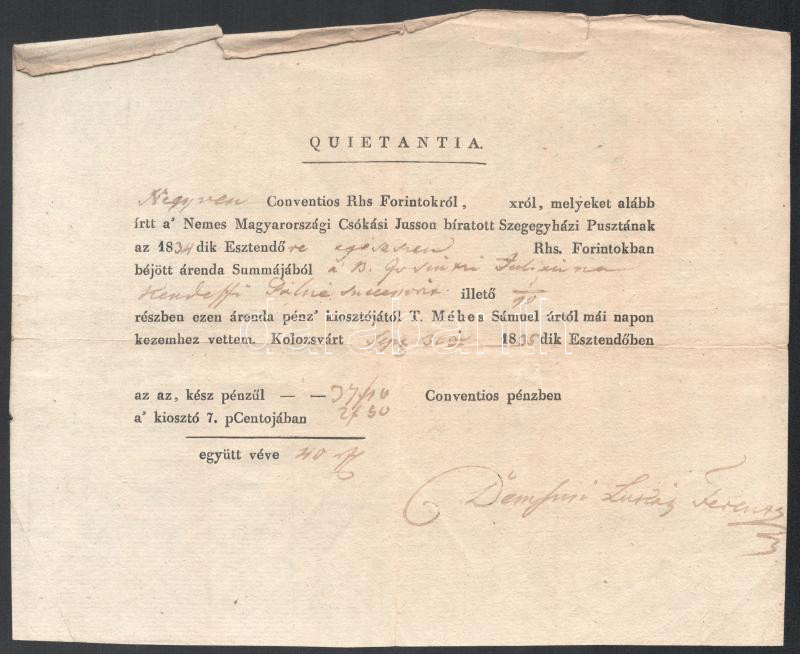 QUIETANTIA.
Negyven Conventios Rhs Forintokról, xról, melyeket alább
írtt a' Nemes Magyarországi Csókási Jusson bíratott Szegegyházi Pusztának
az 1834dik Esztendőre egészszen Rhs. Forintokban
béjött árenda Summájából a B. Josintzi Julianna
Kendeffi Pálné illető 1/10
részben ezen árenda pénz' kiosztójától T. Méhes Sámuel ártól mái napon
kezemhez vettem. Kolozsvárt 1835dik Esztendőben
az az, kész pénzűl — — 37 f 10 Conventios pénzben
a' kiosztó 7. pCentojában 2 f 50
együtt véve 40 f
Ferentz
darabanth